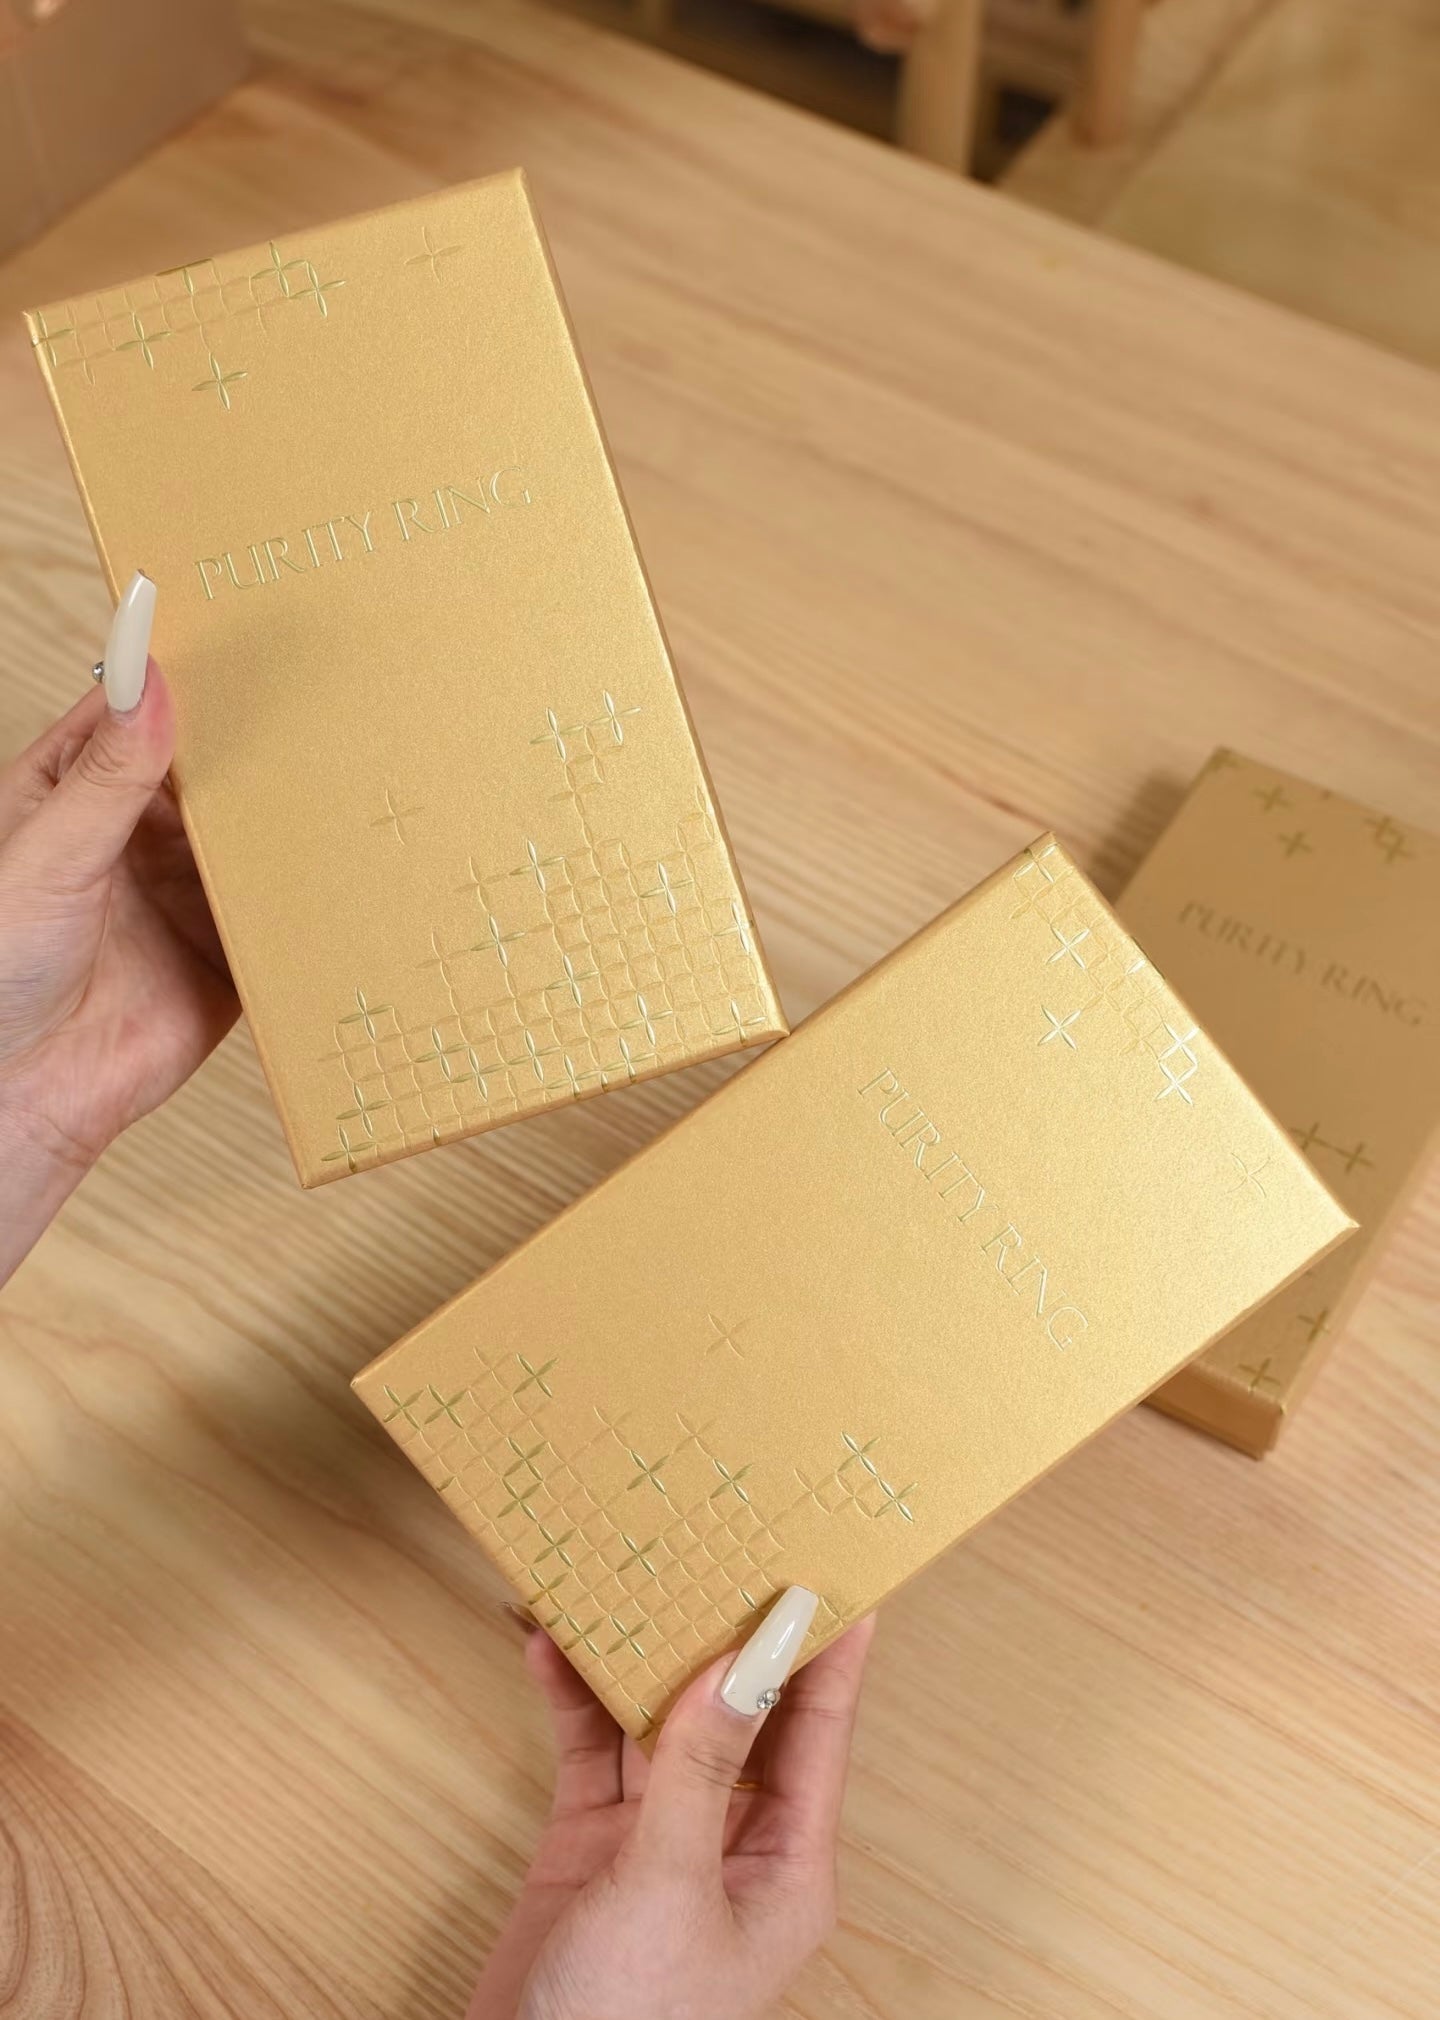 PURITY RING
PURITY RING
PURITY RING